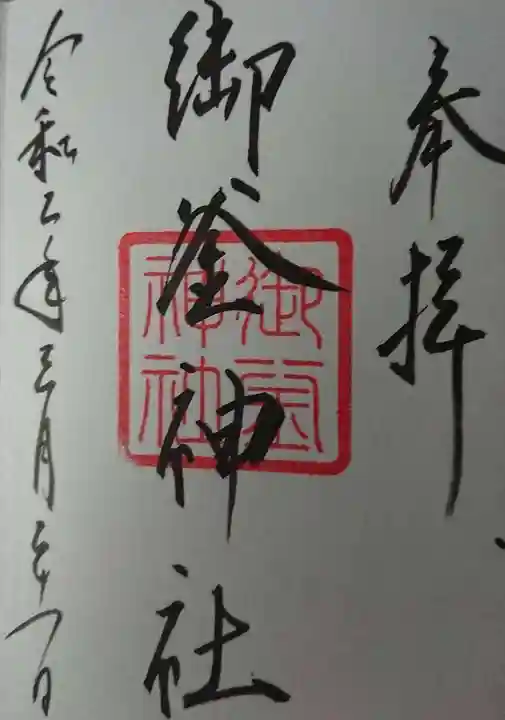 奉拝
御釜神社
御釜
神社
令和二年三月二十一日